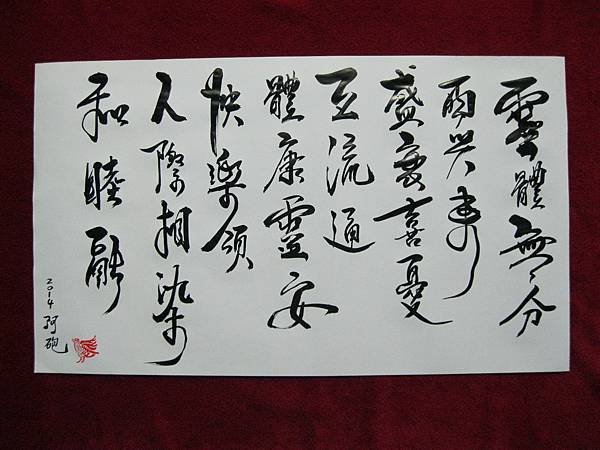 靈體無分
兩共事
盛衰喜憂
互流通
體康靈安
快樂領
人際相染
和睦融
2014 阿砲